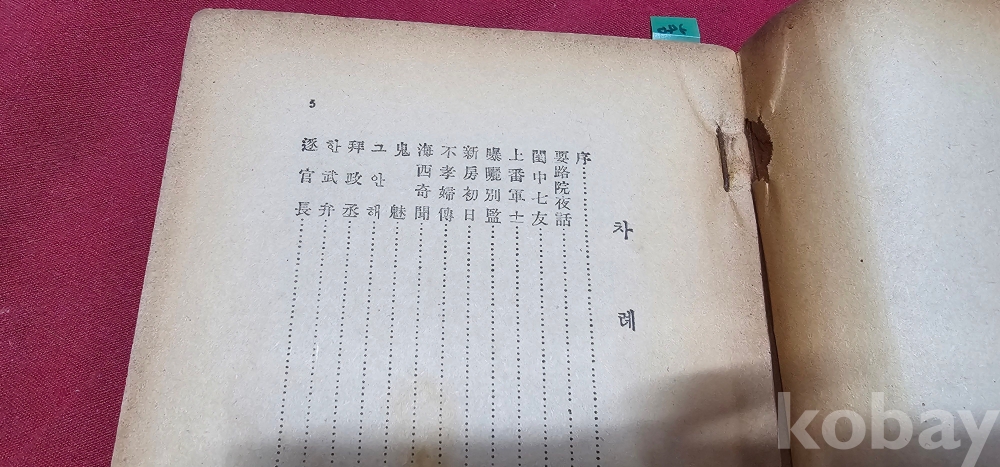 차례
序
要路院夜話
閨中七友
上番軍士
曝曬別監
新房初日
不孝婦傳
海西奇聞
鬼魅
그안해
拜政丞
한武弁
逐官長
5
kobay